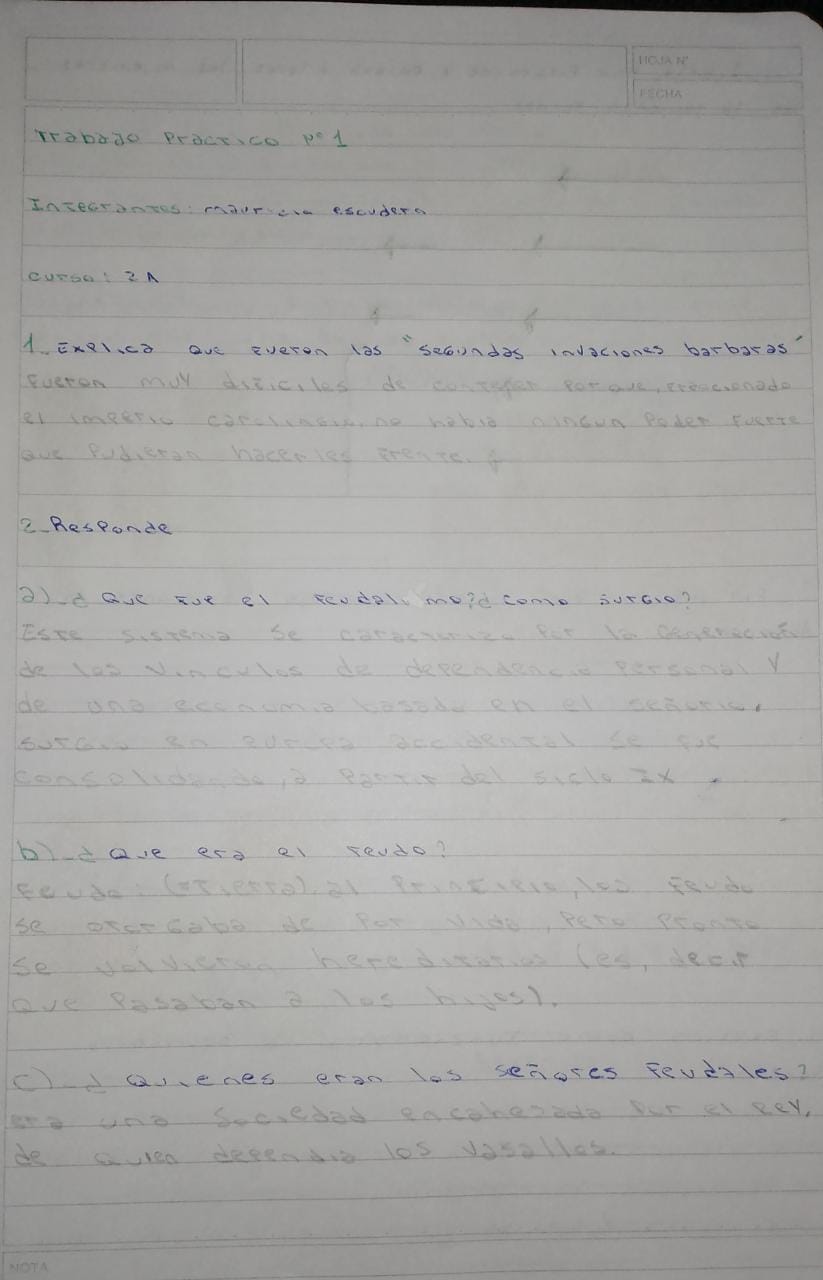 HOJA N°
FECHA
Trabajo Practico N° 1
Integrantes: mauricio escudero
curso: 2 A
1. Explica que fueron las "segundas invaciones barbaras"
Fueron muy dificiles de contener porque, fraccionado
el imperio carolingio, no habia ningun Poder Fuerte
que Pudieran hacerles Frente.
2. Responde
a)-¿ Que fue el Feudalismo?¿ como surgio?
Este sistema se caracterizo Por la Generacion
de los vinculos de dependencia Personal y
de una economia basada en el señorio.
surgio en europa occidental se fue
consolidando, a Partir del siclo IX
b)-¿ Que era el Feudo?
Feudo: (=Tierra). al Principio, los Feudo
se otorgaba de Por vida, Pero Pronto
se volvieron hereditarios (es, decir
que Pasaban a los hijos).
c)-¿ Quienes eran los señores Feudales?
era una Sociedad encabezada Por el Rey,
de quien dependia los vasallos.
NOTA